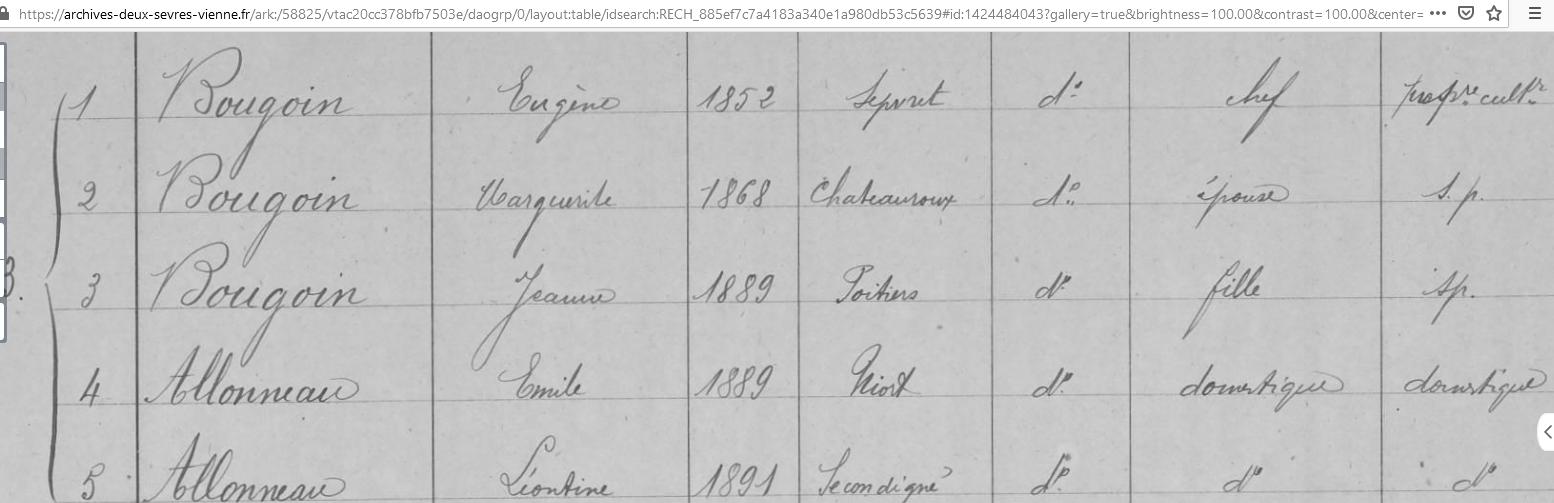 https://archives-deux-sevres-vienne.fr/ark:/58825/vtac20cc378bfb7503e/daogrp/0/layout:table/idsearch:RECH_885ef7c7a4183a340e1a980db53c5639#id:1424484043?gallery=true&brightness=100.00&contrast=100.00&center=
1 Bougoin Eugène 1852 Sepvret do chef propre cultr
2 Bougoin Marguerite 1868 Chateauroux do épouse s. p.
3 Bougoin Jeanne 1889 Poitiers do fille sp.
3.
4 Allonneau Emile 1889 Niort do domestique domestique
5 Allonneau Léontine 1891 Secondigné do do do